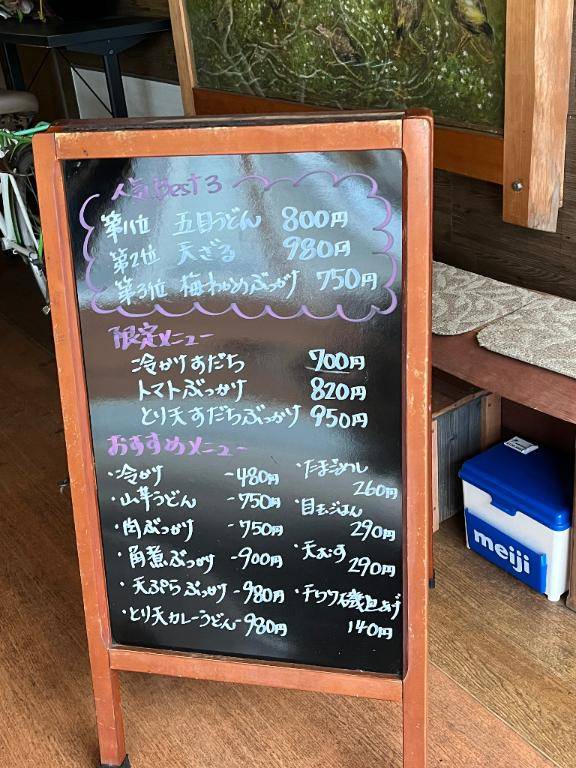 人気Best3
第1位 五目うどん 800円
第2位 天ざる 980円
第3位 梅わかめぶっかけ 750円
限定メニュー
冷かけすだち 700円
トマトぶっかけ 820円
とり天すだちぶっかけ 950円
おすすめメニュー
・冷かけ -480円
・山草うどん -750円
・肉ぶっかけ -750円
・角煮ぶっかけ -900円
・天ぷらぶっかけ -980円
・とり天カレーうどん -980円
・たまごめし
260円
・目玉ごはん
290円
・天むす
290円
・チクワ磯辺あげ
140円
meiji